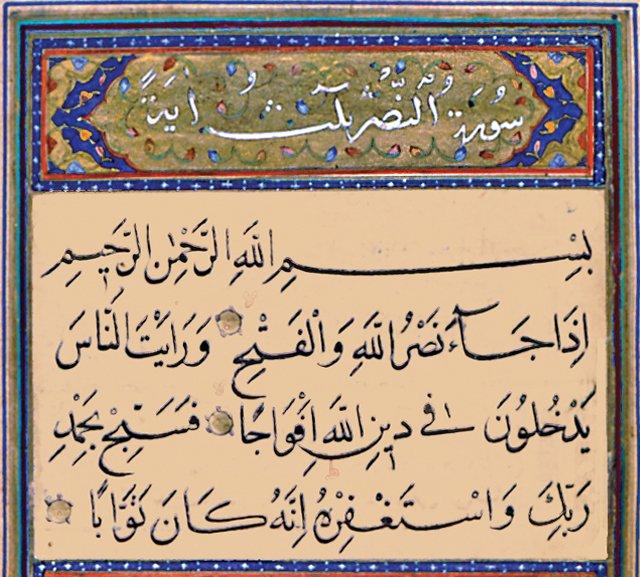 سُورَةُ النَّصْرِ ثَلٰثُ اٰيَةً
بِسْمِ اللّٰهِ الرَّحْمٰنِ الرَّحٖيمِ
اِذَا جَٓاءَ نَصْرُ اللّٰهِ وَالْفَتْحُ وَرَاَيْتَ النَّاسَ
يَدْخُلُونَ فٖى دٖينِ اللّٰهِ اَفْوَاجًا فَسَبِّحْ بِحَمْدِ
رَبِّكَ وَاسْتَغْفِرْهُ اِنَّهُ كَانَ تَوَّابًا